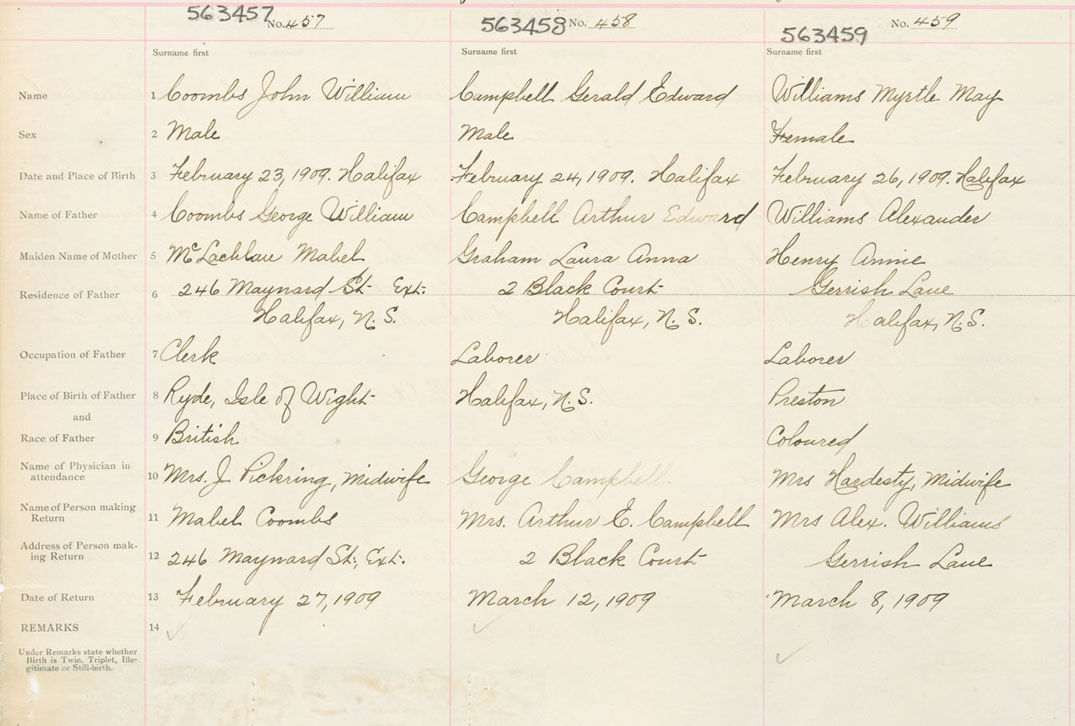 563457 No. 457 563458 No. 458 563459 No. 459
Surname first Surname first Surname first
Name 1 Coombs John William Campbell Gerald Edward Williams Myrtle May
Sex 2 Male Male Female
Date and Place of Birth 3 February 23, 1909. Halifax February 24, 1909. Halifax February 26, 1909. Halifax
Name of Father 4 Coombs George William Campbell Arthur Edward Williams Alexander
Maiden Name of Mother 5 McLachlan Mabel Graham Laura Anna Henry Annie
Residence of Father 6 246 Maynard St. Ext. 2 Black Court Gerrish Lane
Halifax, N.S. Halifax, N.S. Halifax, N.S.
Occupation of Father 7 Clerk Laborer Laborer
Place of Birth of Father 8 Ryde, Isle of Wight Halifax, N.S. Preston
and
Race of Father 9 British Coloured
Name of Physician in
attendance 10 Mrs. J Pickring, Midwife George Campbell Mrs Hardesty, Midwife
Name of Person making
Return 11 Mabel Coombs Mrs. Arthur E. Campbell Mrs Alex. Williams
Address of Person mak-
ing Return 12 246 Maynard St., Ext. 2 Black Court Gerrish Lane
Date of Return 13 February 27, 1909 March 12, 1909 March 8, 1909
REMARKS 14
Under Remarks state whether
Birth is Twin, Triplet, Ille-
gitimate or Still-birth.